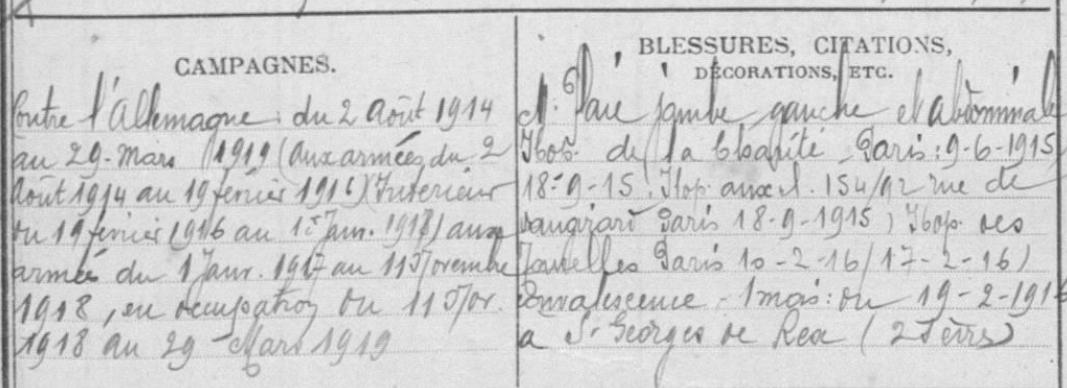 CAMPAGNES.
Contre l'Allemagne : du 2 Août 1914
au 29 Mars 1919 (aux armées du 2
Août 1914 au 19 février 1916) (Intérieur
du 19 février 1916 au 1er Janv. 1917) aux
armées du 1 Janv. 1917 au 11 Novembre
1918, en occupation du 11 Nov.
1918 au 29 Mars 1919
BLESSURES, CITATIONS,
DÉCORATIONS, ETC.
Plaie jambe gauche et abdominale
Hop. de la Charité - Paris : 9-6-1915
18-9-15. Hop. aux. 154/92 rue de
Vaugirard Paris 18-9-1915) Hop. des
Paris 10-2-16/17-2-16)
Convalescence - 1 mois : du 19-2-1916
à St Georges de Rex (2 Sèvres)